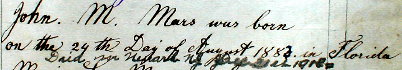 John. M. Mars was born
on the 24th Day of August 1883. in Florida
Died in Newark NJ 1918